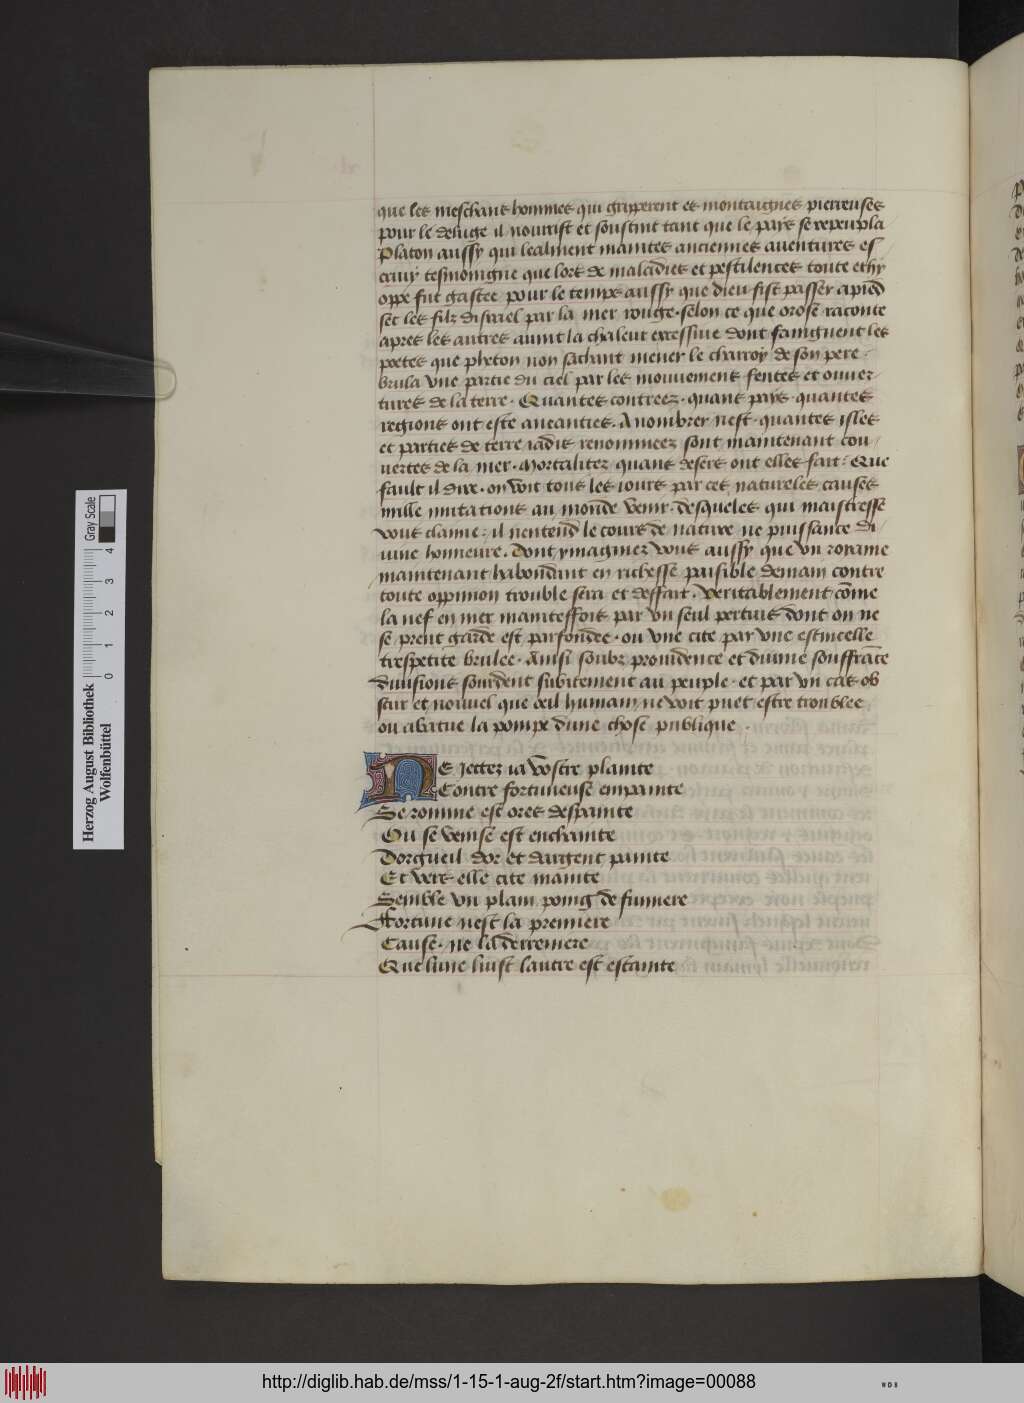 que les meschans hommes qui gripperent es montaignes pierreuses
pour le deluge il nourrist et soustint tant que le pays se repeupla
Platon aussy qui lealment maintes anciennes aventures es
cripuy tesmoingne que lors de maladies et pestilences toute ethy
oppe fut gastee pour le temps aussy que dieu fist passer apied
sec les filz disrael par la mer rouge · selon ce que orose raconte
apres les autres avint la chaleur excessive dont faingnent les
poetes que pheton non sachant mener le charroy de son pere ·
brula vne partie du ciel par les mouuemens fentes et ouuer
tures de la terre · Quantes contrees · quans pays · quantes
regions ont este aneanties · A nombrer nest · quantes isles
et parties de terre iadis renommees sont maintenant cou
uertes de la mer · Mortalitez quans desers ont elles fait : Que
fault il dire · on voit tous les iours par ces natureles causes
mille mutations au monde venir · desqueles qui maistresse
vous claime : il nentend le cours de nature ne puissance di
uine honneure . Dont ymaginez vous aussy que vn roiame
maintenant habondant en richesse paisible demain contre
toute oppinion trouble sera et deffait . Veritablement cõme
la nef en mer mainteffois par vn seul pertuis dont on ne
se prent garde est parfondee · ou vne cite par vne estincelle
trespetite brulee · Ainsi soubz prouidence et diuine souffrãce
diuisions sourdent subitement au peuple · et par vn cas ob
scur et nouuel que oeil humain ne voit puet estre troublee
ou abatue la pompe dune chose publique ·
NE jettez ia vostre plainte
Contre fortuneuse empainte
Se romme est ores despainte
Ou se venise est enchainte
Dorgueil dor et dargent painte
Et vers elle cite mainte
Semble vn plain poing de fumiere
Fortune nest la premiere
Cause · ne la derreniere
Que lune luist lautre est estainte
Herzog August Bibliothek
Wolfenbüttel
Gray Scale
0 1 2 3 4
http://diglib.hab.de/mss/1-15-1-aug-2f/start.htm?image=00088
WDB